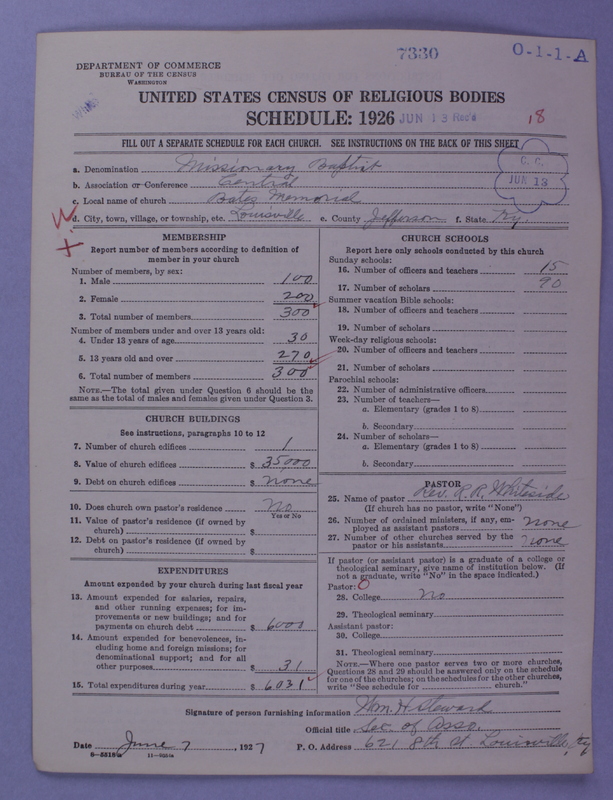 7330
O-1-1-A
DEPARTMENT OF COMMERCE
BUREAU OF THE CENSUS
WASHINGTON
UNITED STATES CENSUS OF RELIGIOUS BODIES
SCHEDULE: 1926 JUN 13 Rec'd
18
FILL OUT A SEPARATE SCHEDULE FOR EACH CHURCH. SEE INSTRUCTIONS ON THE BACK OF THIS SHEET
C. C.
JUN 13
a. Denomination Missionary Baptist
b. Association or Conference Central
c. Local name of church Bates Memorial
d. City, town, village, or township, etc. Louisville e. County Jefferson f. State Ky.
MEMBERSHIP
Report number of members according to definition of
member in your church
Number of members, by sex:
1. Male 100
2. Female 200
3. Total number of members 300
Number of members under and over 13 years old:
4. Under 13 years of age 30
5. 13 years old and over 270
6. Total number of members 300
NOTE.—The total given under Question 6 should be the
same as the total of males and females given under Question 3.
CHURCH BUILDINGS
See instructions, paragraphs 10 to 12
7. Number of church edifices 1
8. Value of church edifices $ 35000
9. Debt on church edifices $ none
10. Does church own pastor's residence No
Yes or No
11. Value of pastor's residence (if owned by
church) $
12. Debt on pastor's residence (if owned by
church) $
EXPENDITURES
Amount expended by your church during last fiscal year
13. Amount expended for salaries, repairs,
and other running expenses; for im-
provements or new buildings; and for
payments on church debt $ 6000
14. Amount expended for benevolences, in-
cluding home and foreign missions; for
denominational support; and for all
other purposes $ 31
15. Total expenditures during year $ 6031
CHURCH SCHOOLS
Report here only schools conducted by this church
Sunday schools:
16. Number of officers and teachers 15
17. Number of scholars 90
Summer vacation Bible schools:
18. Number of officers and teachers
19. Number of scholars
Week-day religious schools:
20. Number of officers and teachers
21. Number of scholars
Parochial schools:
22. Number of administrative officers
23. Number of teachers—
a. Elementary (grades 1 to 8)
b. Secondary
24. Number of scholars—
a. Elementary (grades 1 to 8)
b. Secondary
PASTOR
25. Name of pastor Rev. R. R. Whiteside
(If church has no pastor, write "None")
26. Number of ordained ministers, if any, em-
ployed as assistant pastors none
27. Number of other churches served by the
pastor or his assistants none
If pastor (or assistant pastor) is a graduate of a college or
theological seminary, give name of institution below. (If
not a graduate, write "No" in the space indicated.)
Pastor: O
28. College No
29. Theological seminary
Assistant pastor:
30. College
31. Theological seminary
NOTE.—Where one pastor serves two or more churches,
Questions 28 and 29 should be answered only on the schedule
for one of the churches; on the schedules for the other churches,
write "See schedule for church."
Signature of person furnishing information Wm. H. Steward
Official title Sec. of Asso.
Date June 7, 1927 P. O. Address 621 8th St. Louisville, Ky
11-9050a